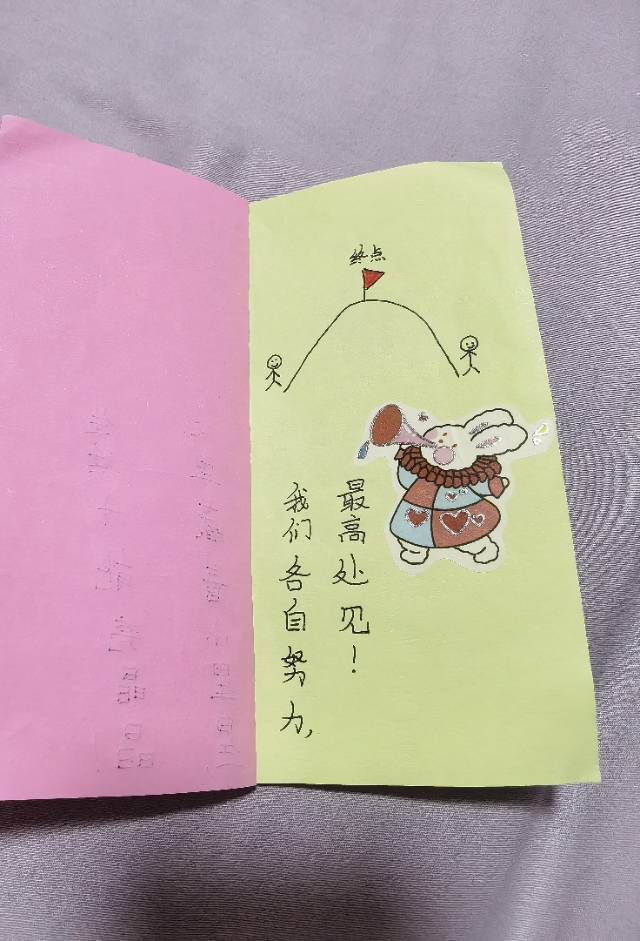 终点
我们各自努力,
最高处见!